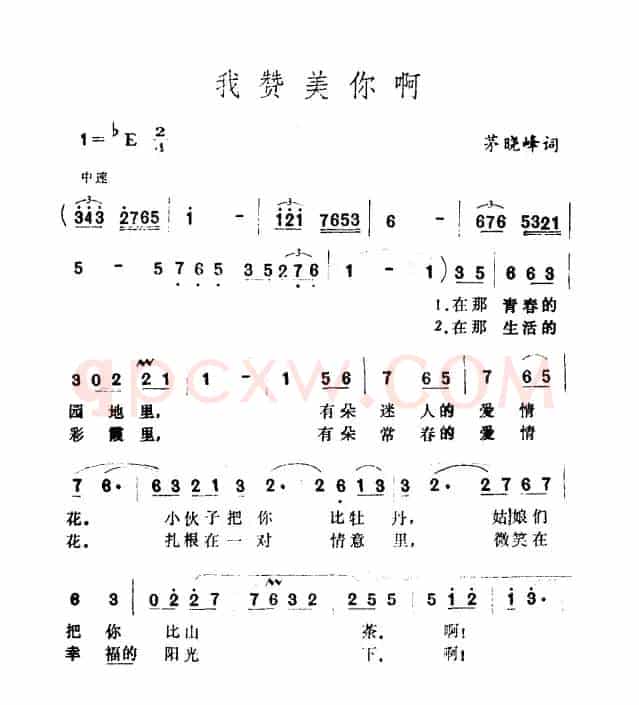 我赞美你啊
1=♭E 2/4
茅晓峰词
中速
(343 2765 | i - | i2i 7653 | 6 - | 676 5321 |
5 - 5765 3 5276 | 1 - 1) | 35 | 6 63 |
1.在那 青春的
2.在那 生活的
302 21 | 1 - | 1 56 | 7 65 | 7 65 |
园 地里， 有朵 迷 人的 爱 情
彩 霞里， 有朵 常 春的 爱 情
7 6· | 63213 | 2· 2613 | 2· 2767 |
花。 小伙子把你 比牡丹，姑娘们
花。 扎根在一对 情意里，微笑在
6 3 | 0227 | 7632 | 255 | 5i2 | i3· |
把 你 比山 茶。 啊！
幸 福的 阳光 下。 啊！
qpcxw.COM